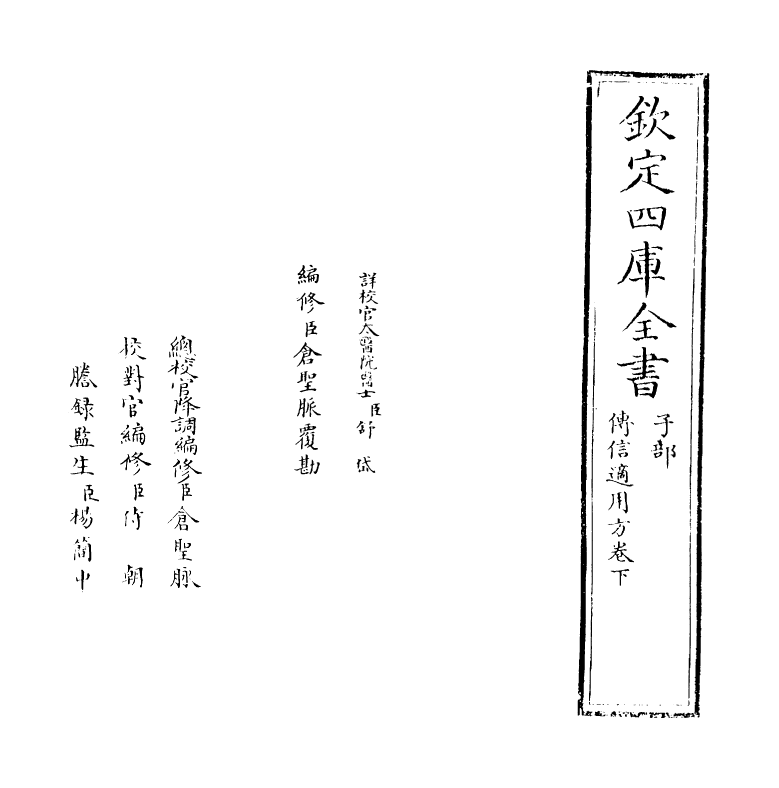 欽定四庫全書
子部
傳信適用方卷下
詳校官太醫院醫士臣舒岱
編修臣倉聖脈覆勘
總校官降調編修臣倉聖脉
校對官編修臣侍朝
謄録監生臣楊簡中